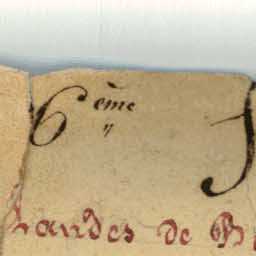 6 ème
Landes de